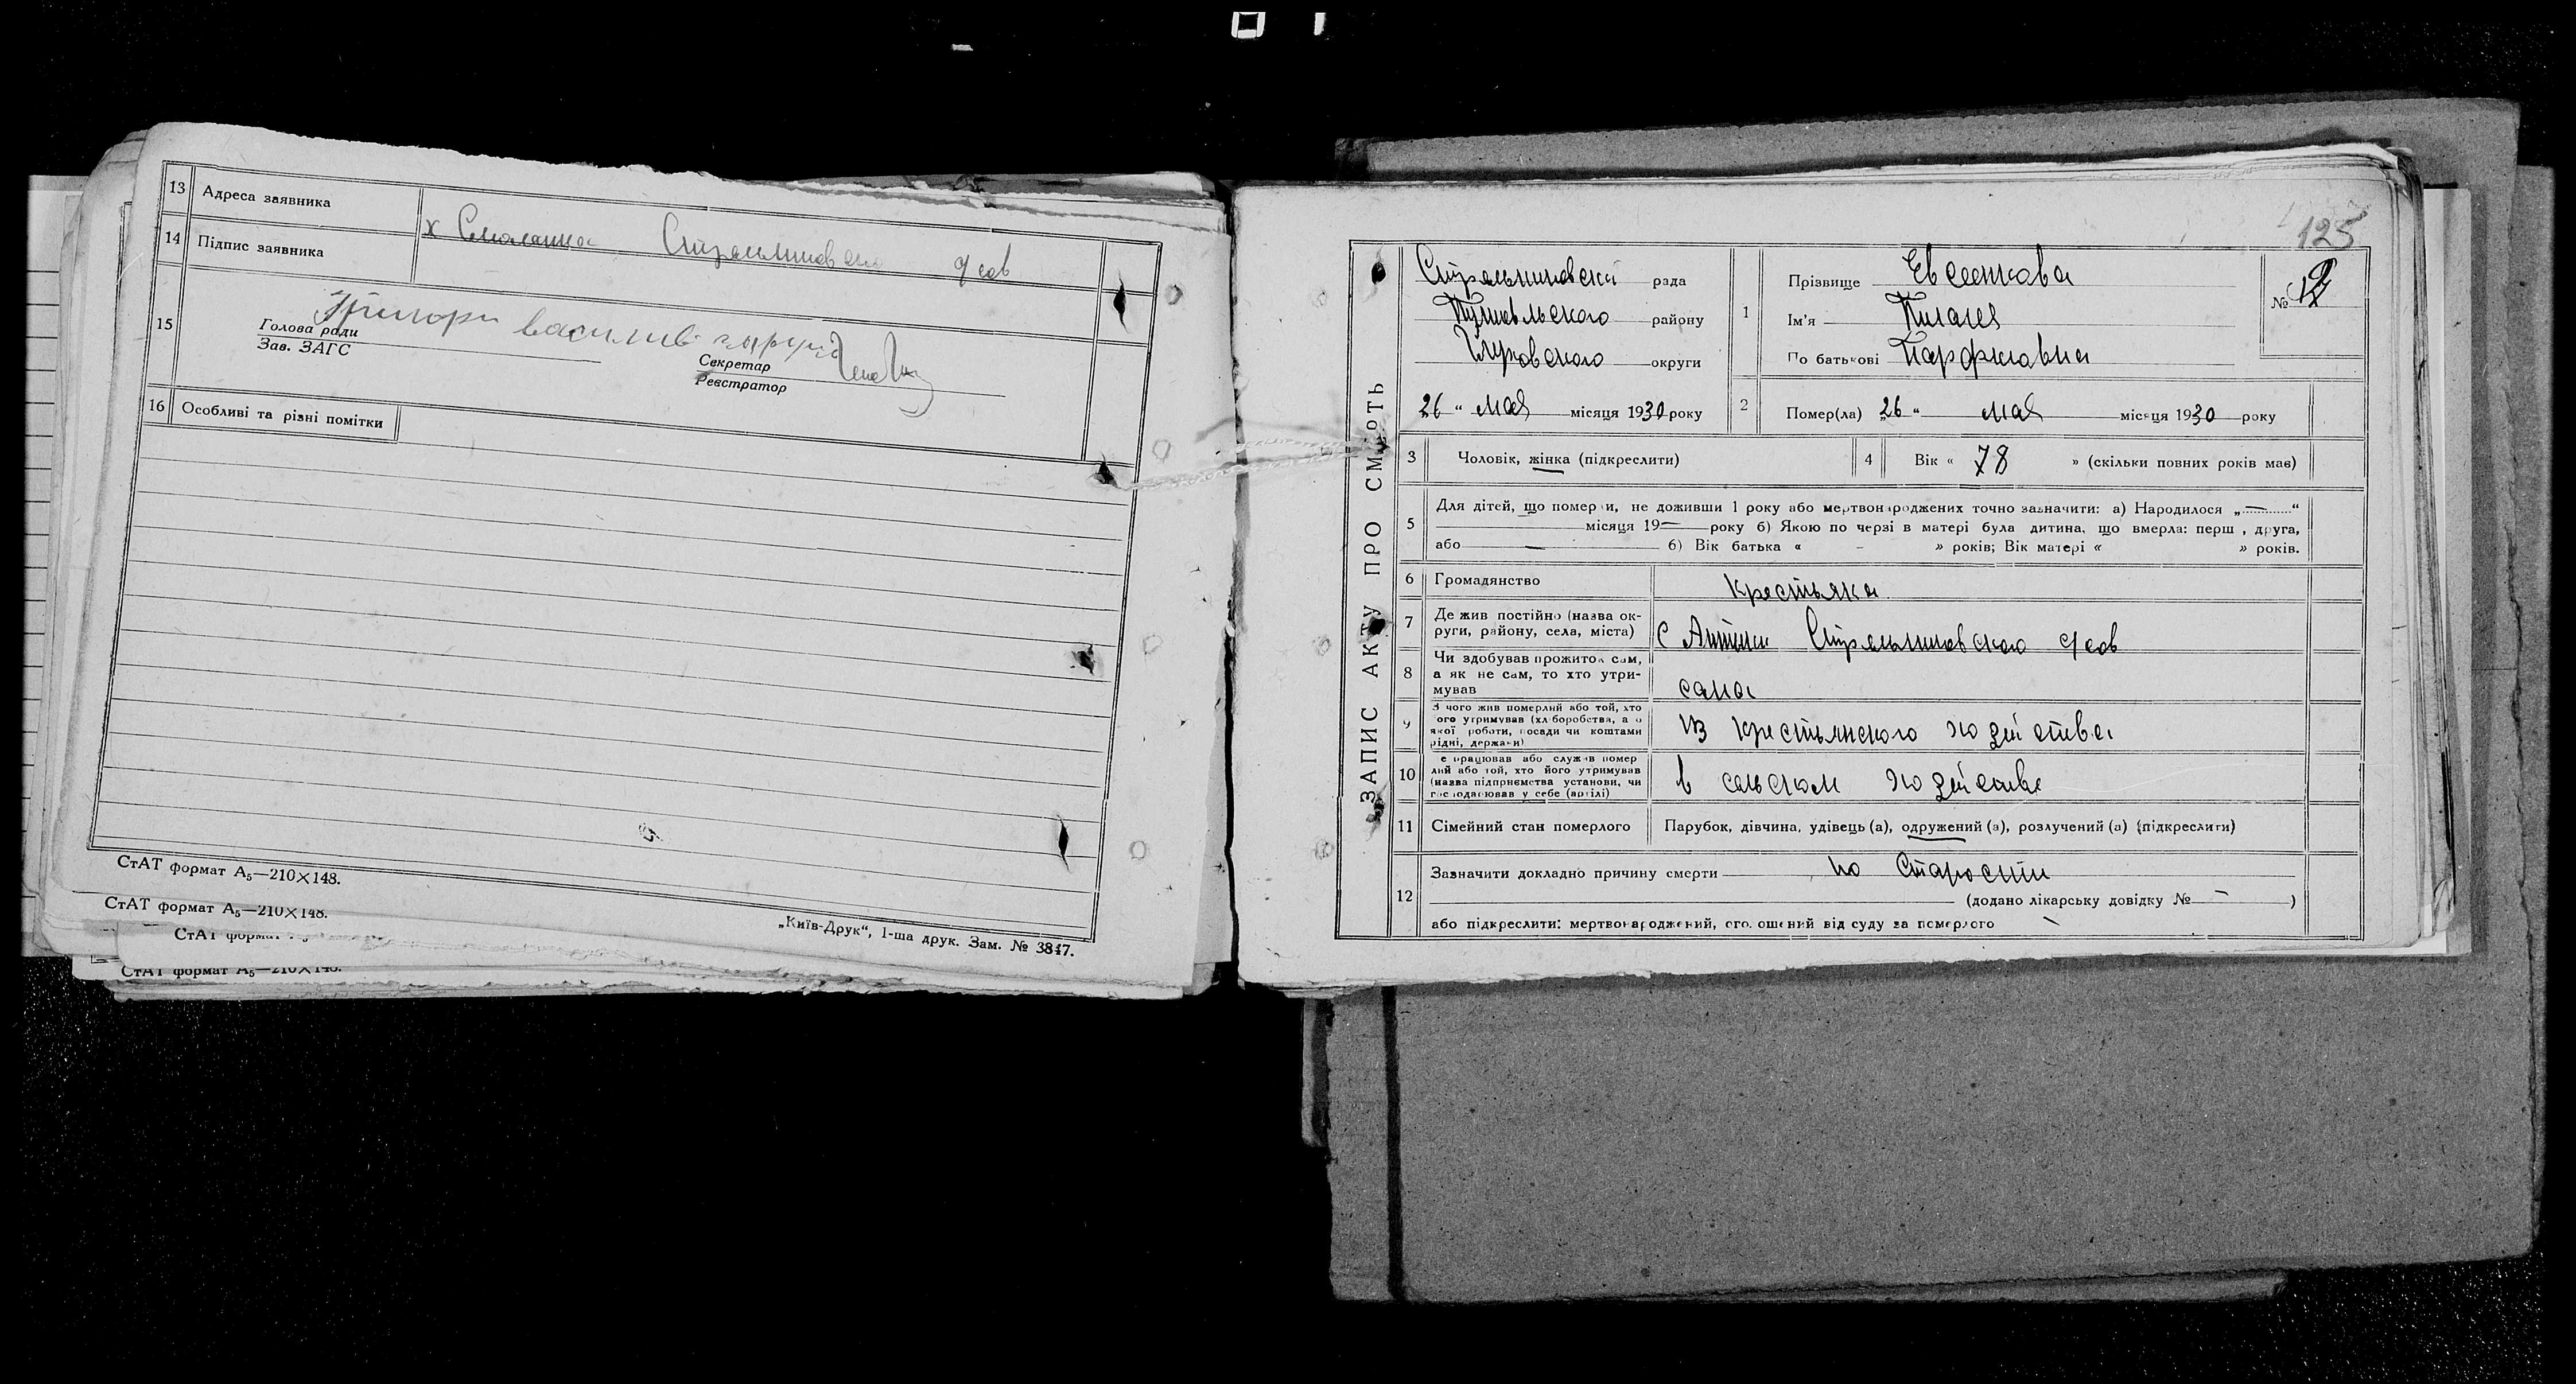 13 Адреса заявника
х Смалянка Стрельниковск с/сов
14 Підпис заявника
15
Григори васились
Голова ради
Зав. ЗАГС
Секретар
Реєстратор
16 Особливі та різні помітки
СтАТ формат А5—210×148.
СтАТ формат А5—210×148.
„Київ-Друк“, 1-ша друк. Зам. № 3847.
СтАТ формат А5—210×148.
125
ЗАПИС АКТУ ПРО СМЕРТЬ
Стрельниковски рада
Путивльского району
Глуховского округи
„26“ мая місяця 1930 року
1
Прізвище Евсеткова
Ім'я Пилагея
По батькові Парфиловна
№ 12
2 Помер(ла) „26“ мая місяця 1930 року
3 Чоловік, жінка (підкреслити)
4 Вік « 78 » (скільки повних років має)
5 Для дітей, що померли, не доживши 1 року або мертвонароджених точно зазначити: а) Народилося „—“
— місяця 19— року б) Якою по черзі в матері була дитина, що вмерла: перш , друга,
або — б) Вік батька « – » років; Вік матері « » років.
6 Громадянство Крестьяка
7 Де жив постійно (назва округи, району, села, міста)
с Стрельниковского с/сов
8 Чи здобував прожиток сам,
а як не сам, то хто утри-
мував
сама
9 З чого жив померлий або той, хто
його утримував (хліборобства, а о
якої роботи, посади чи коштами
рідні, держави)
Из крестьянского хозейства
10 е працював або служив помер
лий або той, хто його утримував
(назва підприємства установи, чи
господарював у себе (артілі)
в сельском хозействе
11 Сімейний стан померлого Парубок, дівчина, удівець (а), одружений (а), розлучений (а) (підкреслити)
12 Зазначити докладно причину смерти по Старости
(додано лікарську довідку № — )
або підкреслити: мертвонароджений, оголошений від суду за померлого —